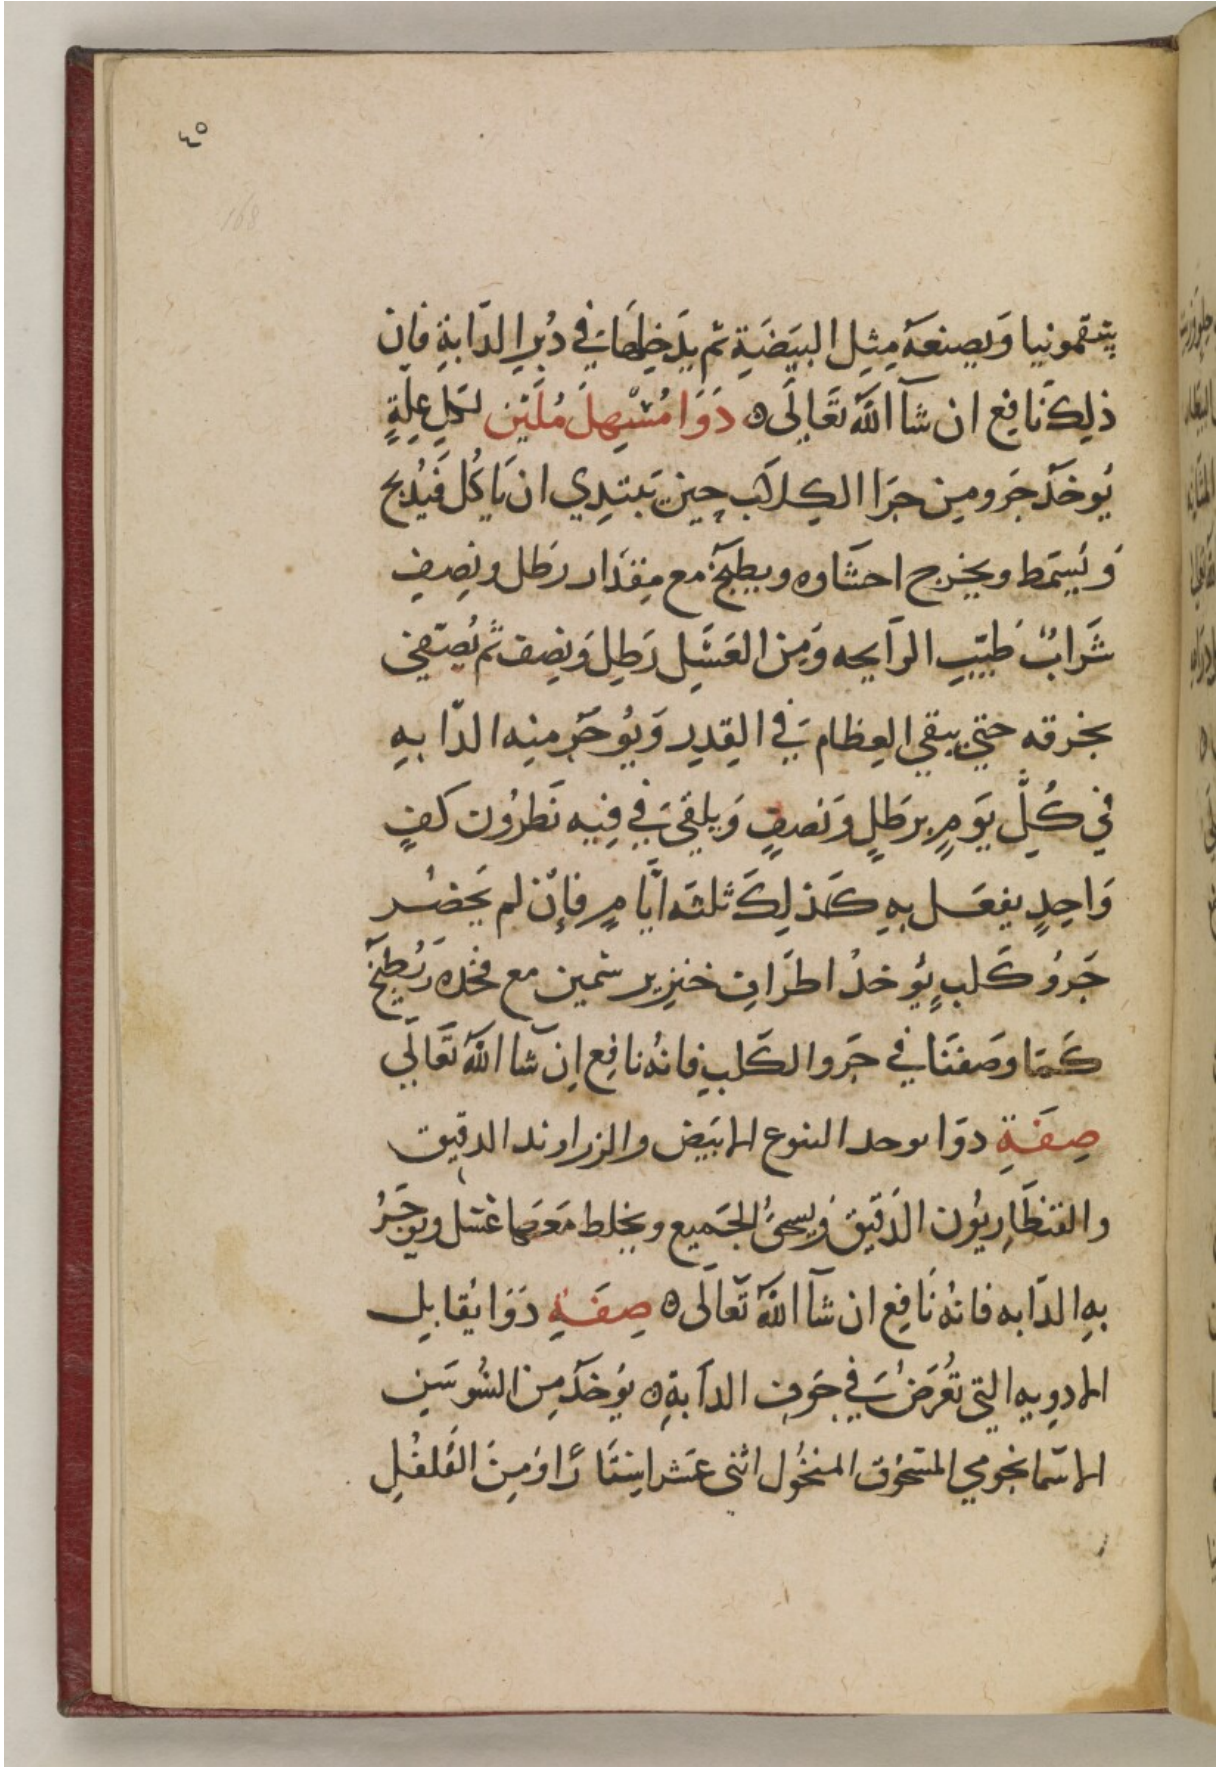 ٤٥
168
سقمونيا وَيصنعَهُ مِثِل البَيضَةِ ثم يدَخِلِهَا فيَ دُبرِ الدّابةِ فان
ذلِكَ نَافِع ان شآ اللَّه تعَالَى ٥ دَوَا مُسْهِلَ مُلَيّن لكلِ عِلةٍ
يُوخذَ جَرو مِن جرَا الكِلاَب حِين يَبتدِي ان يَاكُل فَيُدبح
وَيُسِمَط ويخرج احشَاوه ويطبخَ مع مِقدَار رَطل ونِصِفِ
شَرَابٌ طَيّبِ الرَايحه وَمِن العَسَلِ رَطِلِ وَنِصِف ثمَّ يُصَفىَ
بخرقه حتيَ يبقي العِظام فيَ القِدرِ وَيُوجَر مِنه الدّابهِ
فيِ كُلِّ يَومٍ برَطلٍ وَنصفٍ وَيلقىَ فيَ فِيه نَطرُون كفٍ
وَاحِدٍ يفعَل بهِ كَذلِكَ ثلثه ايَّامٍ فإن لم يَحضُر
جَروُ كَلبٍ يُوخذُ اطرَافِ خنزِير سَمين مع فخده وَيُطبخَ
كَمَا وصَفنَا فيَ جَرو الكَلبِ فانهُ نافِع اِن شآ اللهَ تَعَالَي
صِفَةِ دوَا يوخد الينوع الابيَض والزراوند الدقيق
والقنطَارِيُون الدَقيق وَيسحقُ الجَميع ويخلط مَعَهَا عَسَل ويوجَرُ
بهِ الدّابه فانهُ نَافِع ان شآ اللهَ تعَالَى ٥ صِفَةِ دَوَا يُقابِل
الادوِيه التي تُعرَضُ فيَ جَوفِ الدآبةِ ٥ يُوخَذَ مِن السُوسَنِ
الاسّمانجومي المَسحُوق المنخُول اثنى عَشر اِستَارًا وَمِن الفُلفُلِ